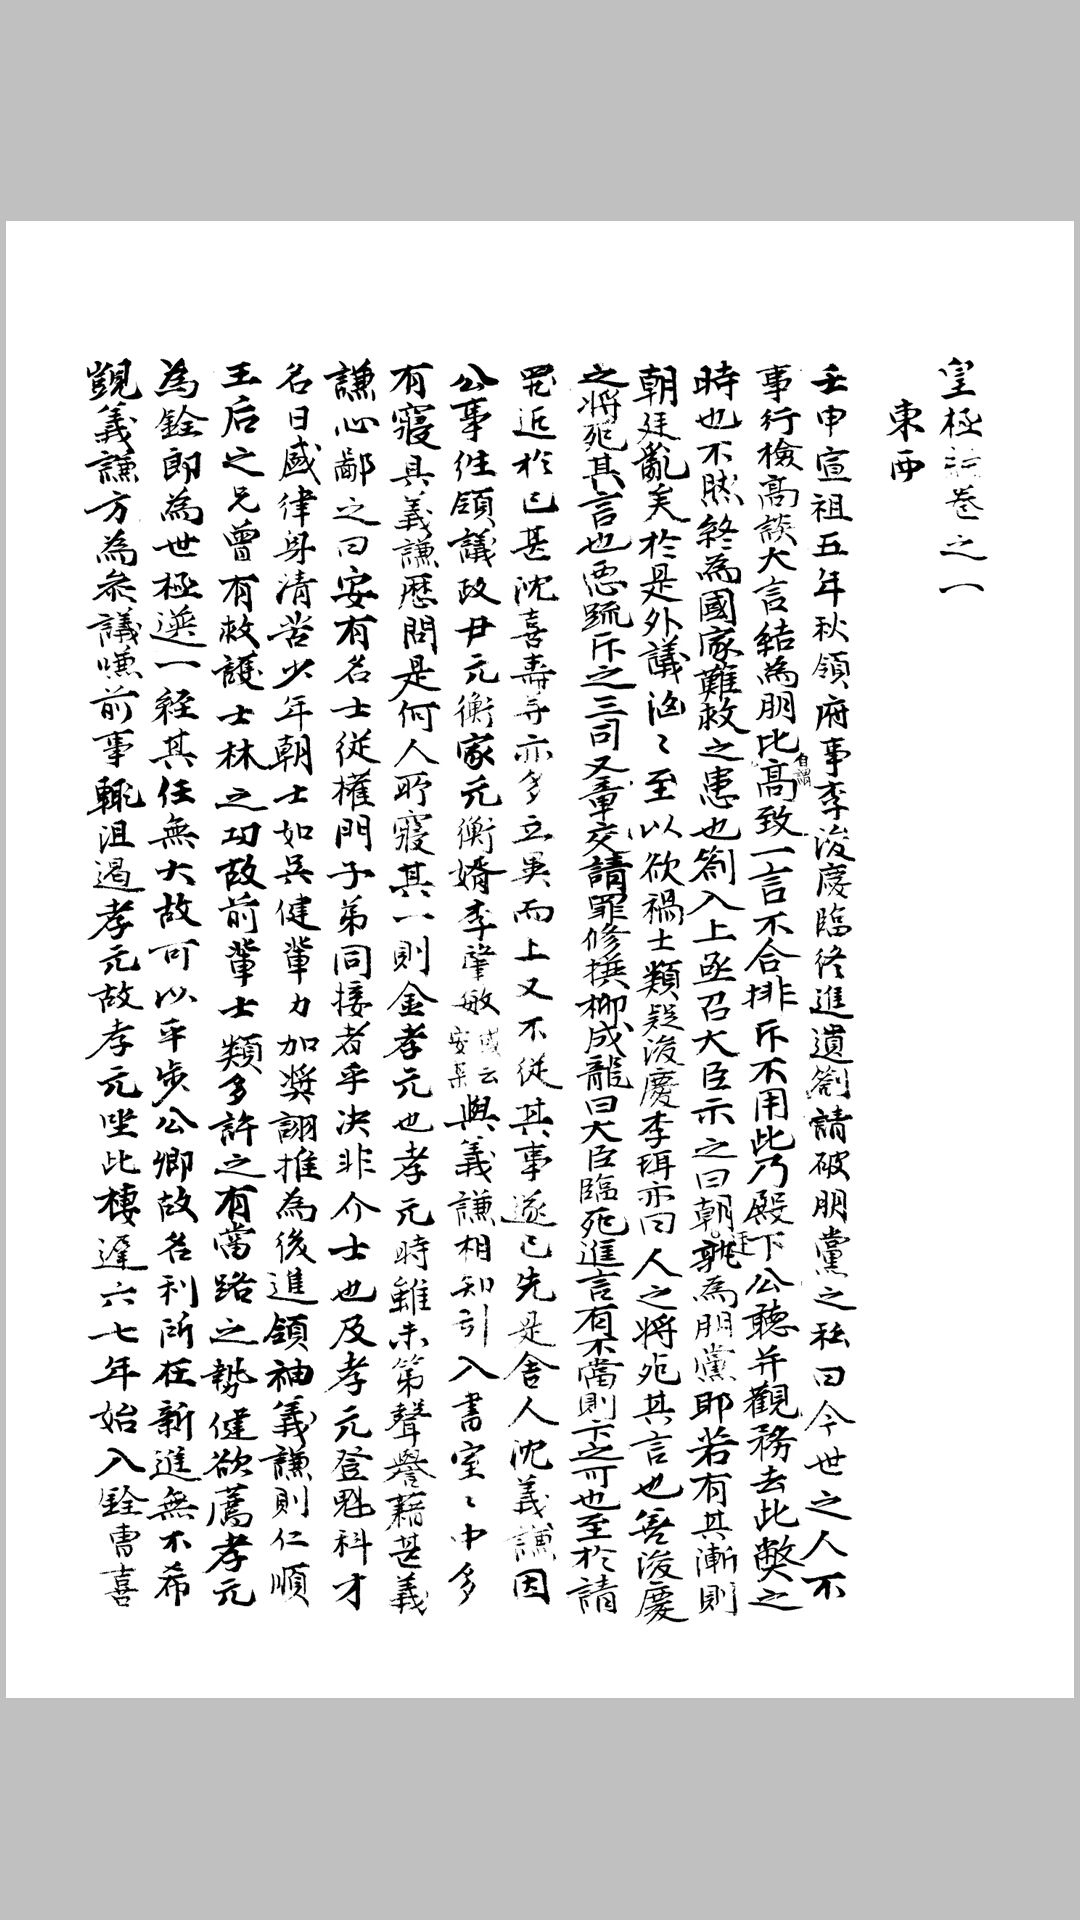 皇極編卷之一
東西
壬申宣祖五年秋領府事李浚慶臨終進遺劄請破朋黨之私曰今世之人不
事行檢高談大言結為朋比自謂高致一言不合排斥不用此乃殿下公聽并觀務去此弊之
時也不然終為國家難救之患也劄入上亟召大臣示之曰朝廷孰為朋黨耶若有其漸則
朝廷亂矣於是外議洶〻至以欲禍士類疑浚慶李珥亦曰人之將死其言也善浚慶
之將死其言也惡䟽斥之三司又章交請罪修撰柳成龍曰大臣臨死進言有不當則卞之可也至於請
罪近於已甚沈喜壽等亦多立異而上又不從其事遂已先是舍人沈義謙因
公事徃領議政尹元衡家元衡婿李肇敏或云安某與義謙相知引入書室〻中多
有寢具義謙歷問是何人所寢其一則金孝元也孝元時雖未第聲譽藉甚義
謙心鄙之曰安有名士從權門子弟同接者乎決非介士也及孝元登魁科才
名日盛律身清苦少年朝士如吳健輩力加奬詡推為後進領袖義謙則仁順
王后之兄曾有救護士林之功故前輩士類多許之有當路之勢健欲薦孝元
為銓郎為世極選一經其任無大故可以平步公卿故名利所在新進無不希
覬義謙方為參議嗛前事輒沮遏孝元故孝元坐此棲遲六七年始入銓曹喜